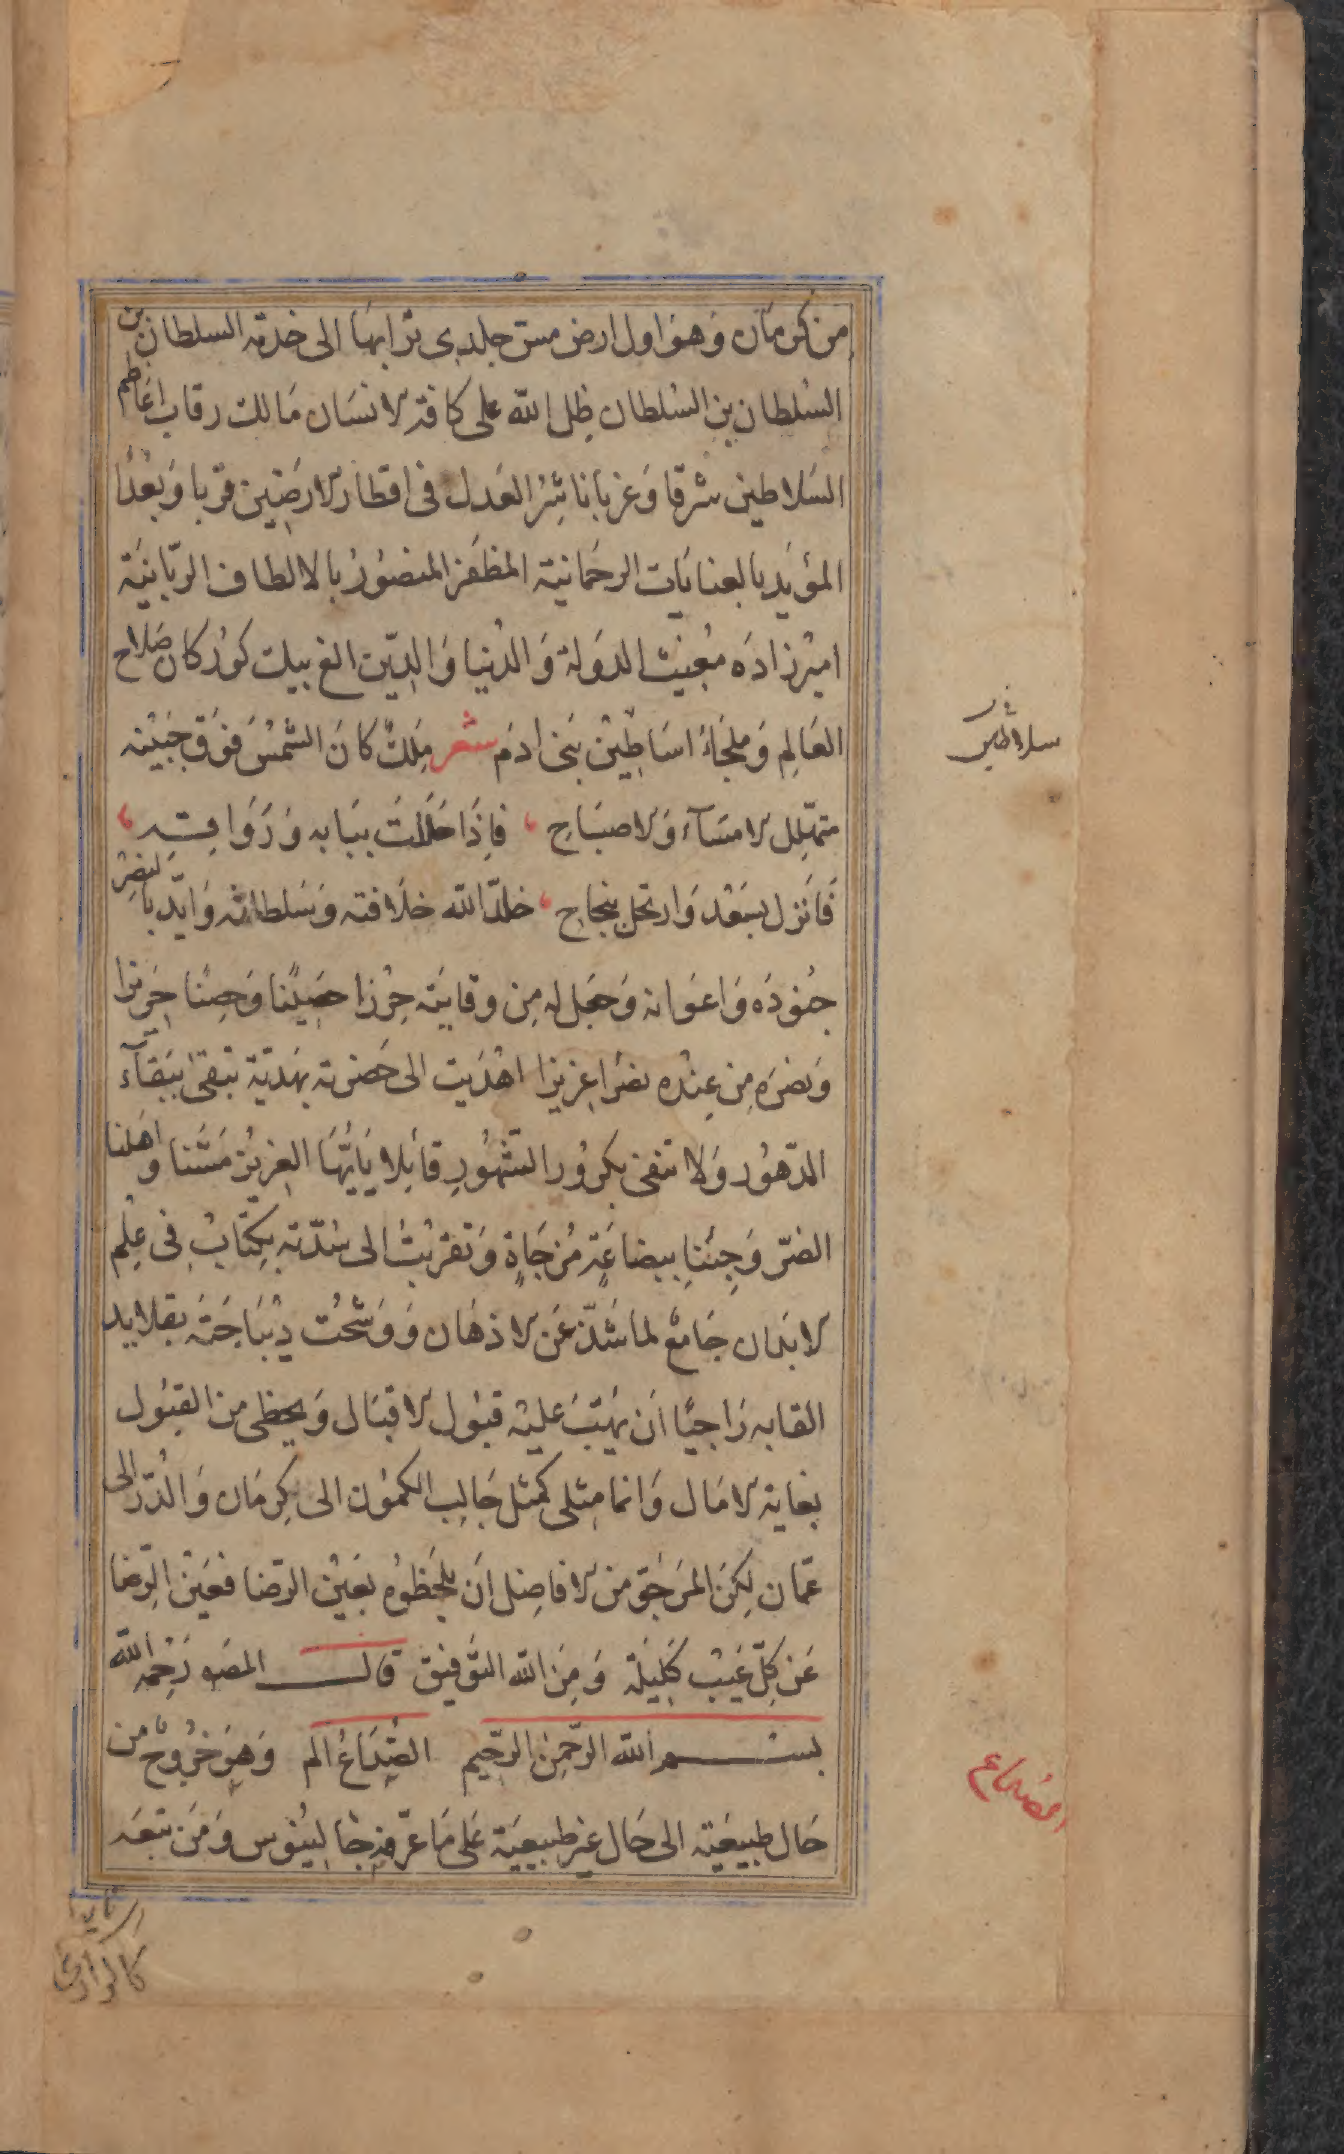 من كرمان وهو اول ارض مس جلدى ترابها الى خدمة السلطان بن
السلطان بن السلطان ظل الله على كافة الانسان مالك رقاب اعاظم
السلاطين شرقا وغربا ناشر العدل فى اقطار الارضين قربا وبعدا
المؤيد بالعنايات الرحمانية المظفر المنصور بالالطاف الربانية
اميرزاده مغيث الدولة والدنيا والدين الغ بيك كوركان صلاح
العالم وملجاء اساطين بنى ادم شعر ملك كان الشمس فوق جبينه
متهلل الامساء والاصباح ، فاذا حللت ببابه ورواقه ،
فانزل بسعد وارتحل بنجاح ، خلد الله خلافته وسلطانه وايد بالنصر
جنوده واعوانه وجعل له من وقايته حرزا حصينا وحصنا حريزا
ونصره من عنده نصرا عزيزا اهديت الى حضرته بهدية تبقى ببقآء
الدهور ولا تفنى بكرور الشهور قائلا يايها العزيز مسنا واهلنا
الضر وجئنا ببضاعة مزجاة وتقربت الى سدته بكتاب فى علم
الابدان جامع لما شذ عن الاذهان ووشحت ديباجته بقلايد
القابه راجيا ان يهب عليه قبول الاقبال ويحظى من القبول
بغاية الامال وانما مثلى كمثل جالب الكمون الى كرمان والدر الى
عمان لكن المرجو من الافاضل ان يلحظوه بعين الرضا فعين الرضا
عن كل عيب كليلة ومن الله التوفيق قال المصـ رحمه الله
بسم الله الرحمن الرحيم الصداع الم وهو خروج من
حال طبيعية الى حال غير طبيعية على ما عرفه جالينوس ومن تبعه
سلاطين
الصداع